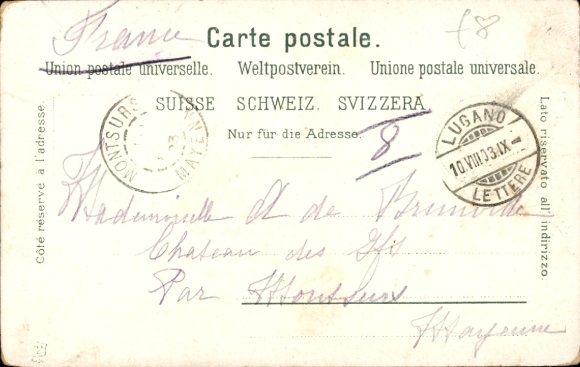 France
£8
Carte postale.
Union postale universelle. Weltpostverein. Unione postale universale.
SUISSE SCHWEIZ. SVIZZERA
Nur für die Adresse.
8
Côté réservé à l'adresse.
Lato riservato all' indirizzo.
MONTSURS MAYENNE
03
LUGANO
10.VIII.03.IX
LETTERE
Mademoiselle A de
Chateau des Ifs
Par Montsurs
Mayenne